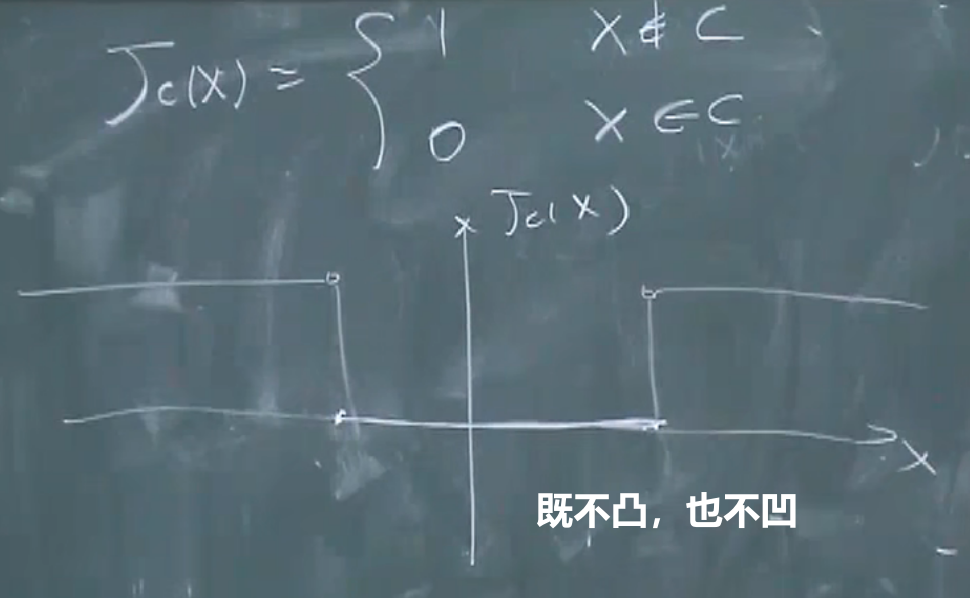 J_C(X) = { 1 X ∉ C
0 X ∈ C
J_C(X)
X
既不凸，也不凹